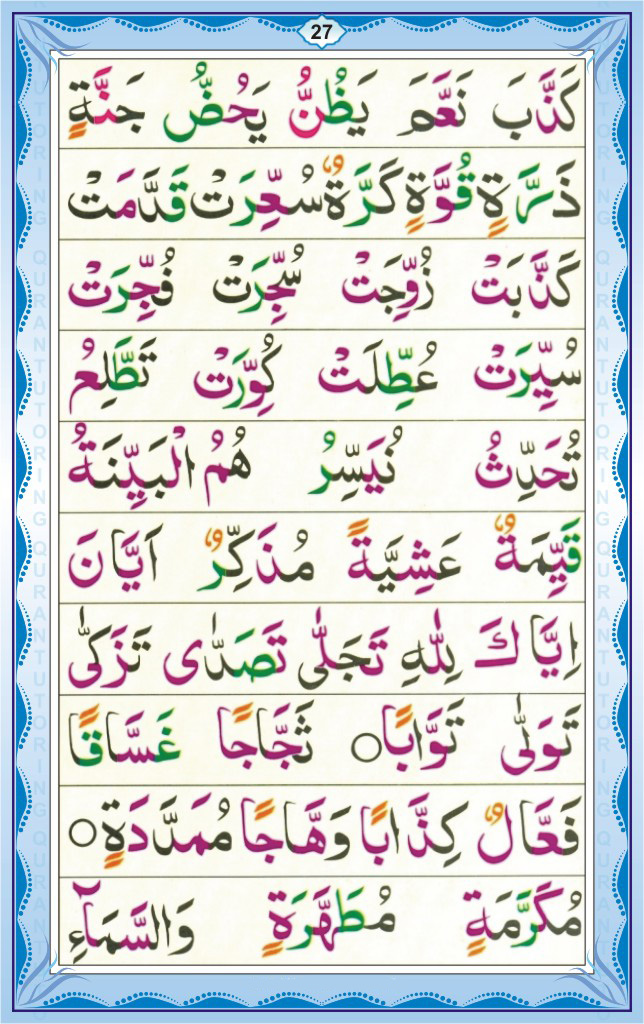 27
كَذَّبَ نَعَّمَ يَظُنُّ يَحُضُّ جَنَّةٍ
ذَرَّةٍ قُوَّةٍ كَرَّةٌ سُعِّرَتْ قَدَّمَتْ
كَذَّبَتْ زُوِّجَتْ سُجِّرَتْ فُجِّرَتْ
سُيِّرَتْ عُطِّلَتْ كُوِّرَتْ تَطَّلِعُ
تُحَدِّثُ نُيَسِّرُ هُمُ الْبَيِّنَةُ
قَيِّمَةٌ عَشِيَّةً مُذَكِّرٌ اَيَّانَ
اِيَّاكَ لِلّٰهِ تَجَلّٰى تَصَدّٰى تَزَكّٰى
تَوَلّٰى تَوَّابًا ○ ثَجَّاجًا غَسَّاقًا
فَعَّالٌ كِذَّابًا وَهَّاجًا مُمَدَّدَةٍ ○
مُكَرَّمَةٍ مُطَهَّرَةٍ وَالسَّمَآءِ
QURAN TUTORING QURAN TUTORING
QURAN TUTORING QURAN TUTORING